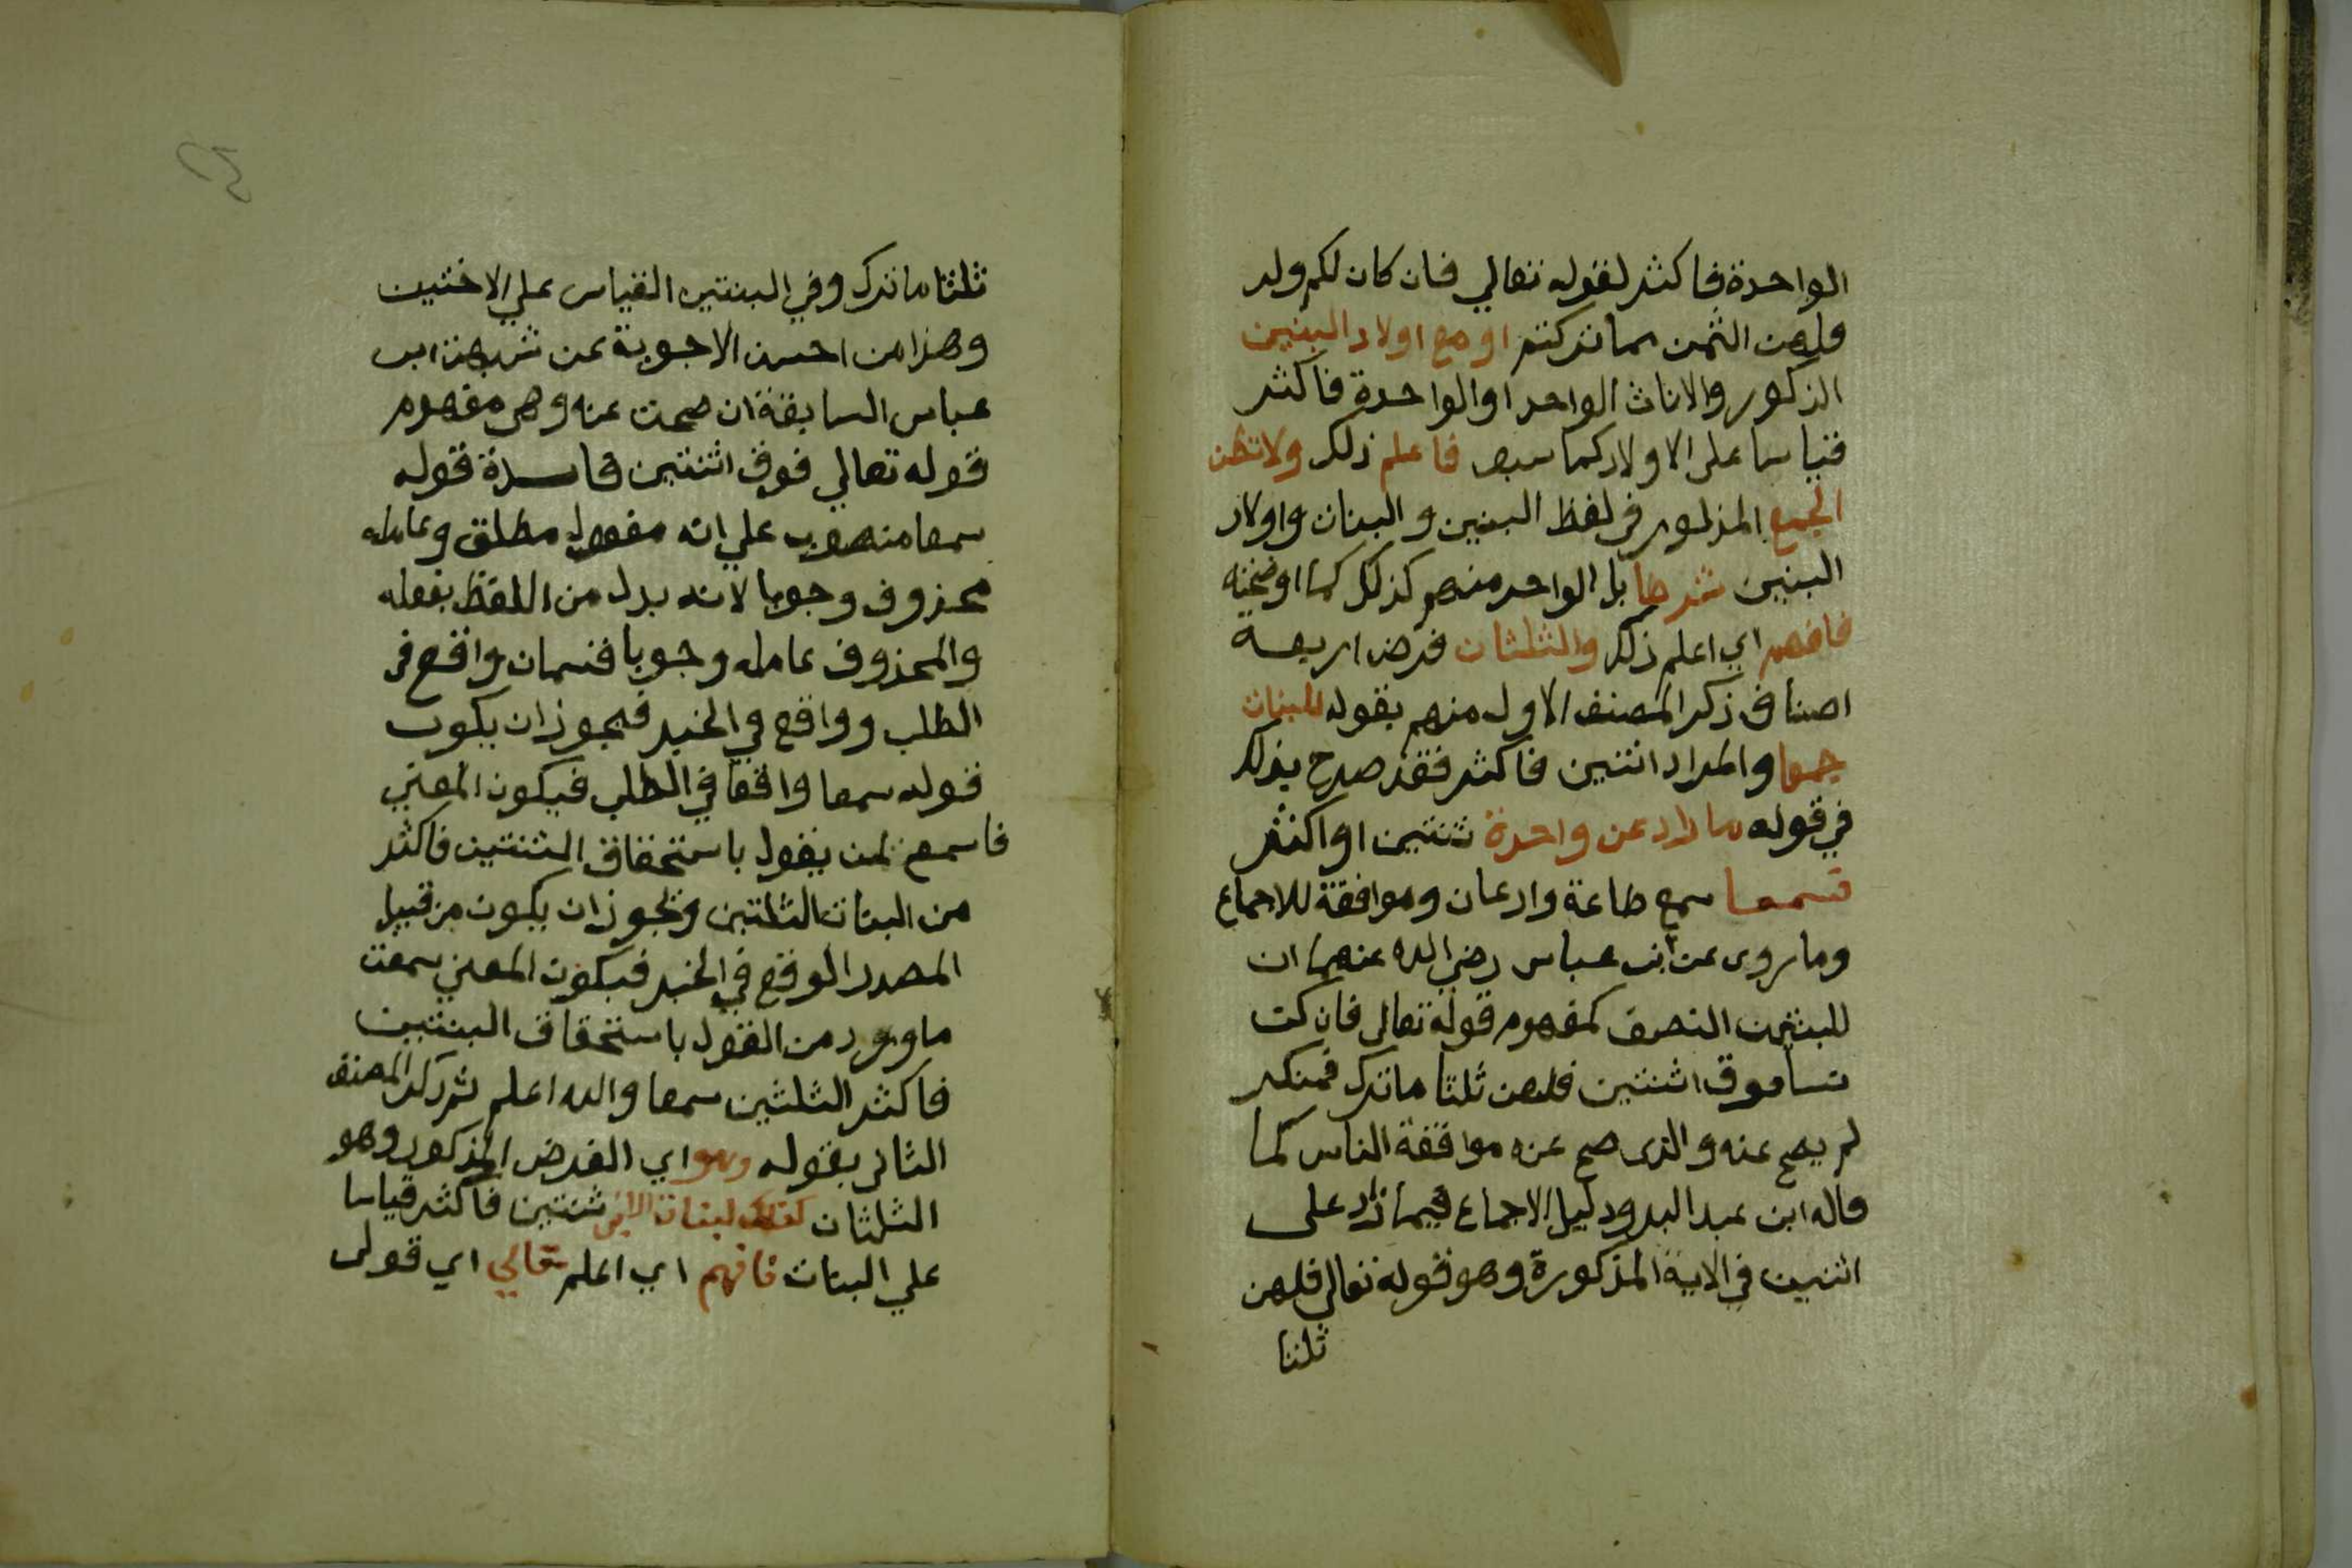 الواحدة فاكثر لقوله تعالي فان كان لكم ولد
فلهن الثمن مما تركتم او مع اولاد البنين
الذكور والاناث الواحد او الواحدة فاكثر
قياسا على الاولاد كما سبق فاعلم ذلك ولا تظن
الجمع المذكور في لفظ البنين والبنات واولاد
البنين شرطا بل الواحد منهم كذلك كما اوضحته
فافهم اي اعلم ذلك والثلثان فرض اربعة
اصناف ذكر المصنف الاول منهم بقوله للبنات
جمعا والمراد اثنتين فاكثر فقد صرح بذلك
في قوله ما زاد عن واحدة ثنتين او اكثر
فسمعا سمع طاعة واذعان وموافقة للاجماع
وما روى عن ابن عباس رضي الله عنهما ان
للبنتين النصف لمفهوم قوله تعالى فان كن
نسا فوق اثنتين فلهن ثلثا ما ترك فمنكر
لم يصح عنه والذى صح عنه موافقة الناس كما
قاله ابن عبد البر ودليل الاجماع فيما زاد على
اثنتين في الاية المذكورة وهو قوله تعالى فلهن
ثلثا
ثلثا ما ترك وفي البنتين القياس علي الاختين
وهذا من احسن الاجوبة عن شبهة ابن
عباس السابقة ان صحت عنه وهي مفهوم
قوله تعالي فوق اثنتين فاسدة قوله
سمعا منصوب علي انه مفعول مطلق وعامله
محذوف وجوبا لانه بدل من اللفظ بفعله
والمحذوف عامله وجوبا قسمان واقع في
الطلب وواقع في الخبر فيجوز ان يكون
قوله سمعا واقعا في الطلب فيكون المعني
فاسمع لمن يقول باستحقاق الثنتين فاكثر
من البنات الثلثين ويجوز ان يكون من قبيل
المصدر الوقع في الخبر فيكون المعني سمعت
ما ورد من القول باستحقاق البنتين
فاكثر الثلثين سمعا والله اعلم ثم ذكر المصنف
الثاني بقوله وهو اي الفرض المذكور وهو
الثلثان كذلك لبنات الابن ثنتين فاكثر قياسا
علي البنات فافهم اي اعلم مقالي اي قولى